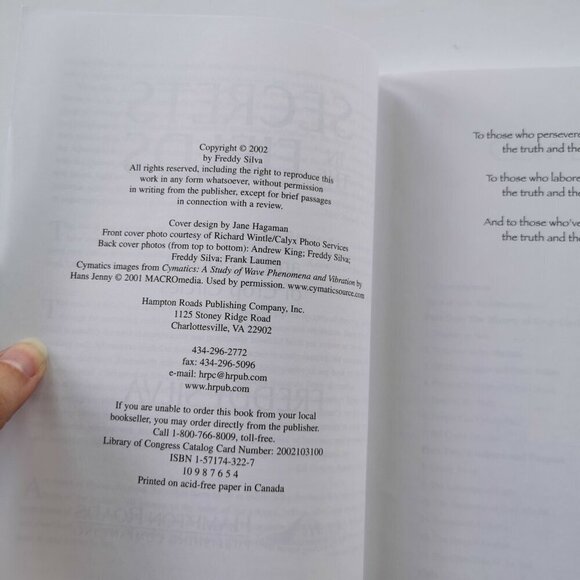 Copyright © 2002
by Freddy Silva
All rights reserved, including the right to reproduce this
work in any form whatsoever, without permission
in writing from the publisher, except for brief passages
in connection with a review.
Cover design by Jane Hagaman
Front cover photo courtesy of Richard Wintle/Calyx Photo Services
Back cover photos (from top to bottom): Andrew King; Freddy Silva;
Freddy Silva; Frank Laumen
Cymatics images from Cymatics: A Study of Wave Phenomena and Vibration by
Hans Jenny © 2001 MACROmedia. Used by permission. www.cymaticsource.com
Hampton Roads Publishing Company, Inc.
1125 Stoney Ridge Road
Charlottesville, VA 22902
434-296-2772
fax: 434-296-5096
e-mail: hrpc@hrpub.com
www.hrpub.com
If you are unable to order this book from your local
bookseller, you may order directly from the publisher.
Call 1-800-766-8009, toll-free.
Library of Congress Catalog Card Number: 2002103100
ISBN 1-57174-322-7
10 9 8 7 6 5 4
Printed on acid-free paper in Canada
To those who persevere
the truth and the
To those who labore
the truth and the
And to those who've
the truth and the